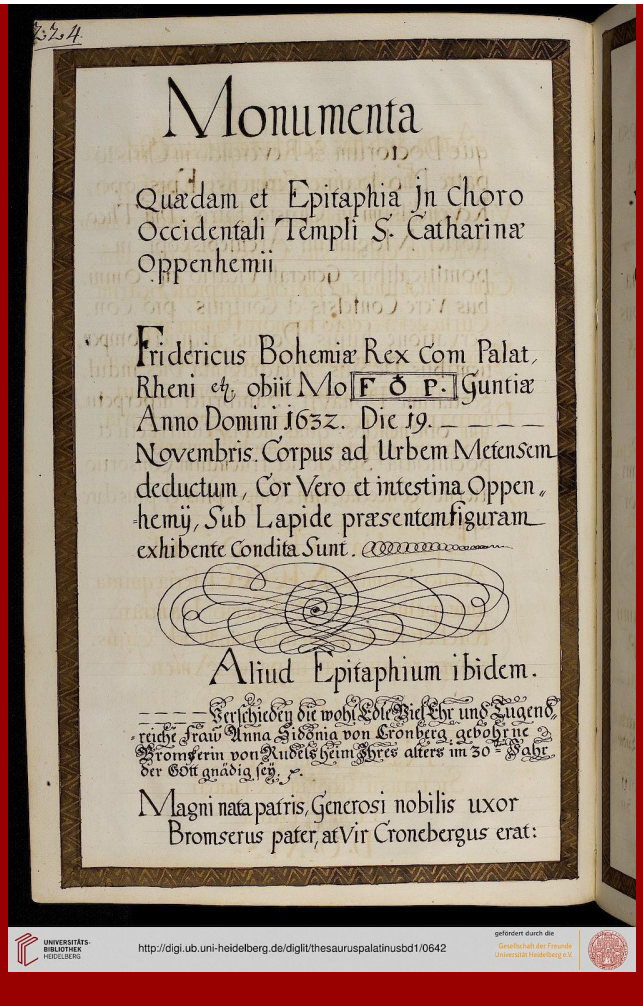 224.
Monumenta
Quædam et Epitaphia Jn Choro
Occidentali Templi S. Catharinæ
Oppenhemii
Fridericus Bohemiæ Rex Com Palat,
Rheni etc, obiit Mo F O P. Guntiæ
Anno Domini 1632. Die 19. – – – – –
Novembris. Corpus ad Urbem Metensem
deductum, Cor Vero et intestina Oppen„
⸗hemij, Sub Lapide præsentem figuram
exhibente Condita Sunt.
Aliud Epitaphium ibidem.
– – – – Verschieden die wohl Edle Viel Ehr und Tugend„
⸗reiche Fraw Anna Sidonia von Cronberg gebohrne
Bromserin von Rudelsheim Jhres alters im 30 Jahr
der Gott gnädig seÿ.
Magni nata patris, Generosi nobilis uxor
Bromserus pater, at Vir Cronebergus erat:
UNIVERSITÄTS-
BIBLIOTHEK
HEIDELBERG
http://digi.ub.uni-heidelberg.de/diglit/thesauruspalatinusbd1/0642
gefördert durch die
Gesellschaft der Freunde
Universität Heidelberg e.V.